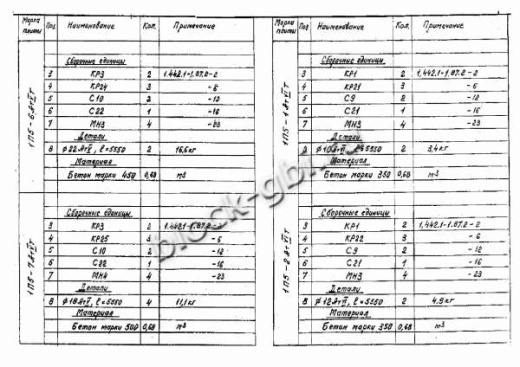 Марка плиты Поз Наименование Кол. Примечание
1П5-6.АтVIт
Сборочные единицы
3 КР3 2 1.442.1-1.07.2-2
4 КР24 3 -6
5 С10 2 -12
6 С22 1 -16
7 МН3 4 -23
Детали
8 Ф22АтVI, ℓ=5550 2 16,6кг
Материал
Бетон марки 450 0,68 м3
1П5-7.АтVIт
Сборочные единицы
3 КР3 2 1.442.1-1.07.2-2
4 КР25 3 -6
5 С10 2 -12
6 С22 1 -16
7 МН4 4 -23
Детали
8 Ф18АтVI, ℓ=5550 4 11,1кг
Материал
Бетон марки 500 0,68 м3
Марка плиты Поз Наименование Кол. Примечание
1П5-1.АтVIт
Сборочные единицы
3 КР1 2 1.442.1-1.07.2-2
4 КР21 3 -6
5 С9 2 -12
6 С21 1 -16
7 МН3 4 -23
Детали
Ф10АтVI, ℓ=5550 2 3,4кг
Материал
Бетон марки 350 0,68 м3
1П5-2.АтVIт
Сборочные единицы
3 КР1 2 1.442.1-1.07.2-2
4 КР22 3 -6
5 С9 2 -12
6 С21 1 -16
7 МН3 4 -23
Детали
8 Ф12АтVI, ℓ=5550 2 4.9кг
Материал
Бетон марки 350 0,68 м3